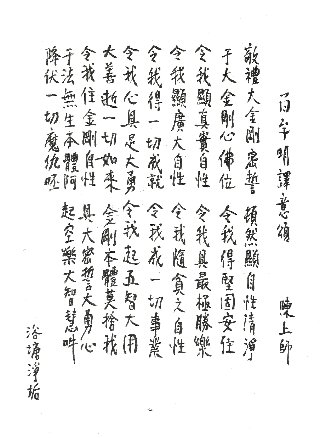 百字明譯意頌 陳上師
敬禮大金剛密誓 頓然顯自性清淨
于大金剛心佛位 令我得堅固安住
令我顯真實自性 令我具最極勝樂
令我顯廣大自性 令我隨貪之自性
令我得一切成就 令我成一切事業
令我心具足大勇 令我起五智大用
大善逝一切如來 金剛本體莫捨我
令我住金剛自性 具大密誓大勇心
于法無生本體阿 起空樂大智慧吽
降伏一切魔仇呸
誦淨垢